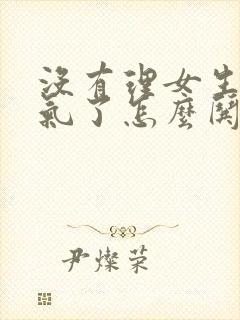 沒有理女生
氣了怎麼開
尹燦榮